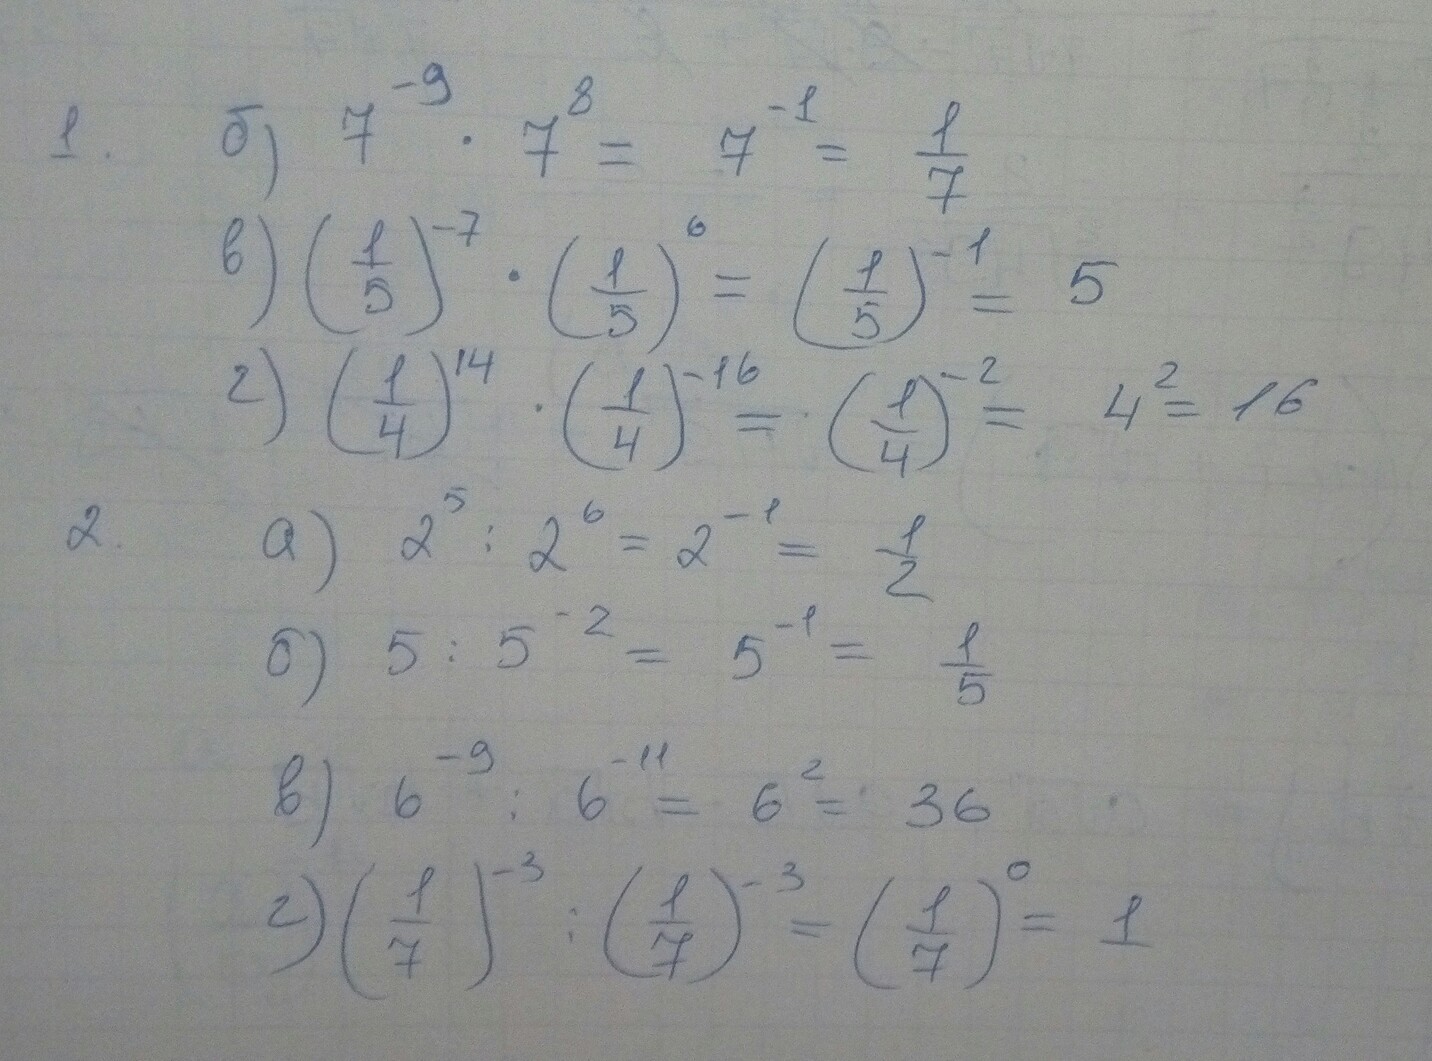 1. б) 7⁻⁹ · 7⁸ = 7⁻¹ = 1/7
в) (1/5)⁻⁷ · (1/5)⁶ = (1/5)⁻¹ = 5
г) (1/4)¹⁴ · (1/4)⁻¹⁶ = (1/4)⁻² = 4² = 16
2. а) 2⁵ : 2⁶ = 2⁻¹ = 1/2
б) 5 : 5⁻² = 5⁻¹ = 1/5
в) 6⁻⁹ : 6⁻¹¹ = 6² = 36
г) (1/7)⁻³ : (1/7)⁻³ = (1/7)⁰ = 1